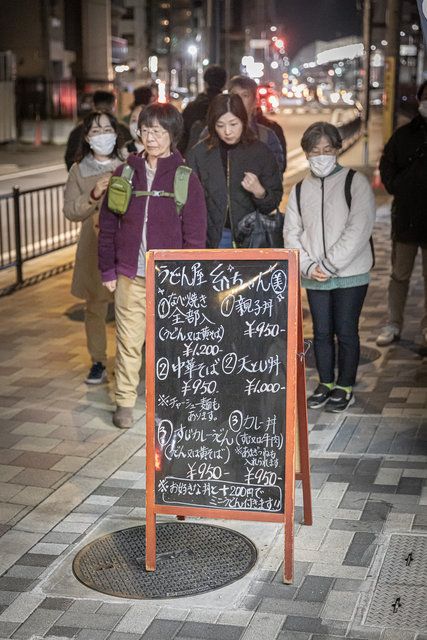 うどん屋 糸ちゃん 美
①なべ焼き
全部入
(うどん又は黄そば)
¥1,200-
①親子丼
¥950-
②中華そば
¥950-
※チャーシュー麺も
あります。
②天とじ丼
¥1,000-
③すじカレーうどん
(うどん又は黄そば)
¥950-
③カレー丼
(すじ又は牛肉)
¥950-
※お好きな丼と+200円で
ミニうどん付きます!!